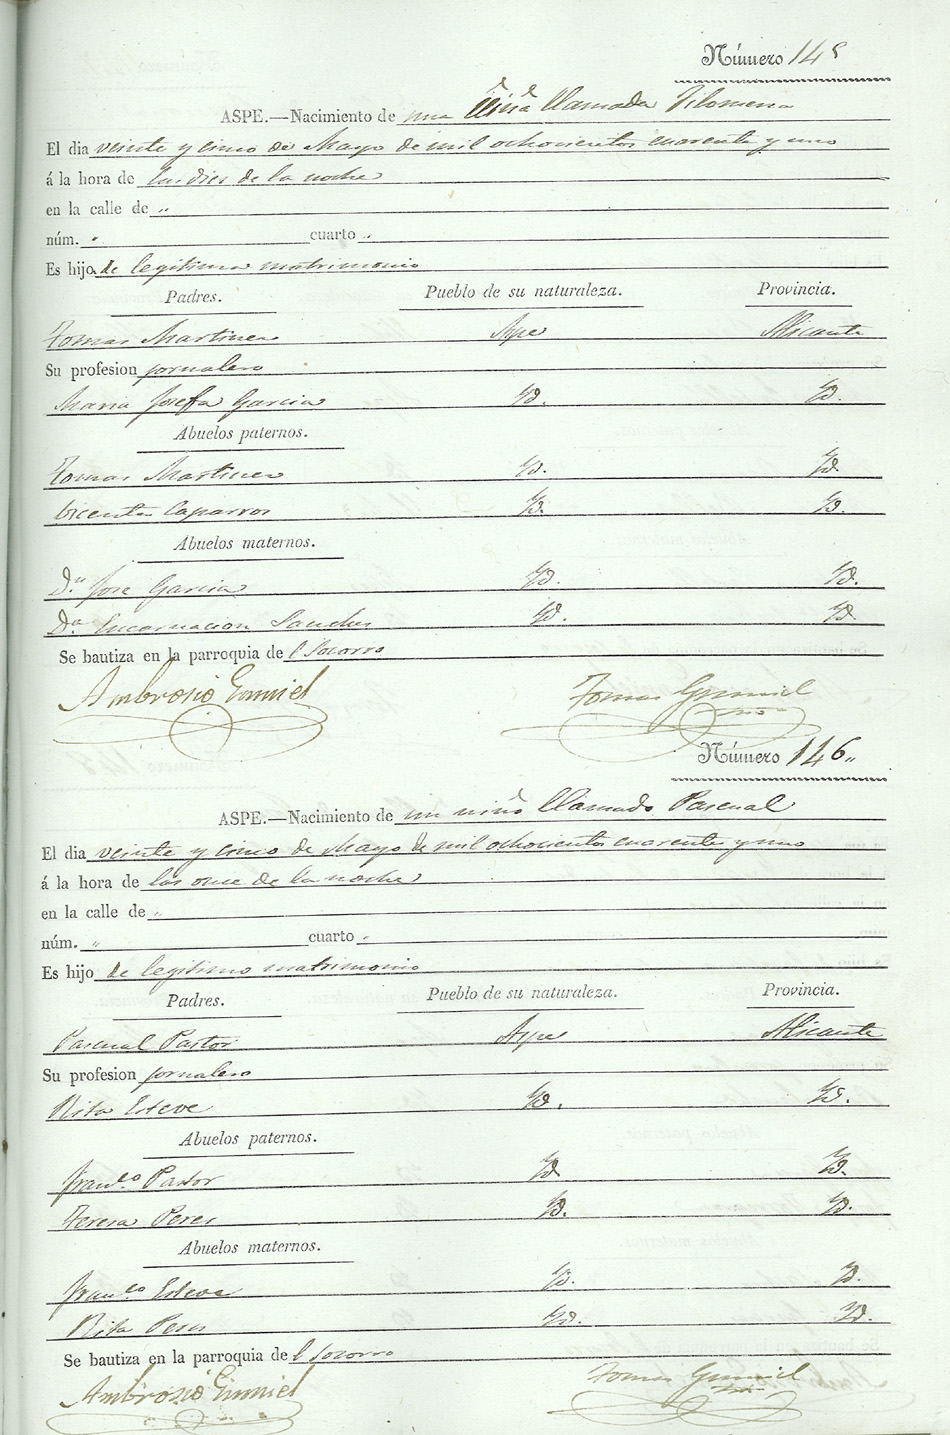 Número 145
ASPE.—Nacimiento de una Niña llamada Filomena
El dia veinte y cinco de Mayo de mil ochocientos cuarenta y uno
á la hora de las dies de la noche
en la calle de „
núm. „ cuarto „
Es hijo de legitimo matrimonio
Padres. Pueblo de su naturaleza. Provincia.
Tomas Martinez Aspe Alicante
Su profesion jornalero
Maria Josefa Garcia Yd. Yd.
Abuelos paternos.
Tomas Martinez Yd. Yd.
Vicenta Caparros Yd. Yd.
Abuelos maternos.
Dn. Jose Garcia Yd. Yd.
Da. Encarnacion Sanches Yd. Yd.
Se bautiza en la parroquia de l Socorro
Ambrosio Tomas
Número 146„
ASPE.—Nacimiento de un niño llamado Pascual
El dia veinte y cinco de Mayo de mil ochocientos cuarenta y uno
á la hora de las once de la noche
en la calle de „
núm. „ cuarto „
Es hijo de legitimo matrimonio
Padres. Pueblo de su naturaleza. Provincia.
Pascual Pastor Aspe Alicante
Su profesion jornalero
Rita Esteve Yd. Yd.
Abuelos paternos.
Franco. Pastor Yd. Yd.
Teresa Peres Yd. Yd.
Abuelos maternos.
Franco. Esteve Yd. Yd.
Rita Peres Yd. Yd.
Se bautiza en la parroquia de l Socorro
Ambrosio Tomas